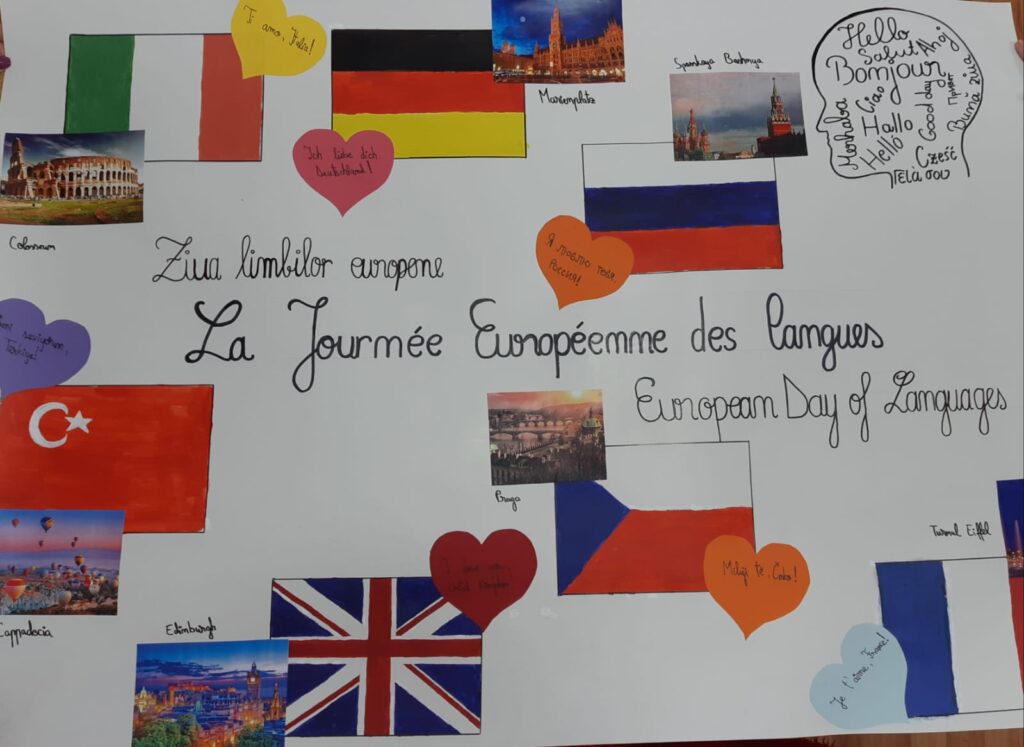 Ti amo, Italia!
Marienplatz
Spasskaya Bashnya
Hello
Salut
Ahoj
Bonjour
Merhaba
Ciao
Hallo
Good day
Привет
Bună ziua
Helló
Cześć
Γειά σου
Ich liebe dich
Deutschland!
Colosseum
Я люблю тебя,
Россия!
Ziua limbilor europene
La Journée Européenne des langues
European Day of Languages
seviyorum,
Türkiye!
Praga
Turnul Eiffel
I love you,
United Kingdom
Miluji tě, Česko!
Cappadocia
Edinburgh
Je t'aime, France!